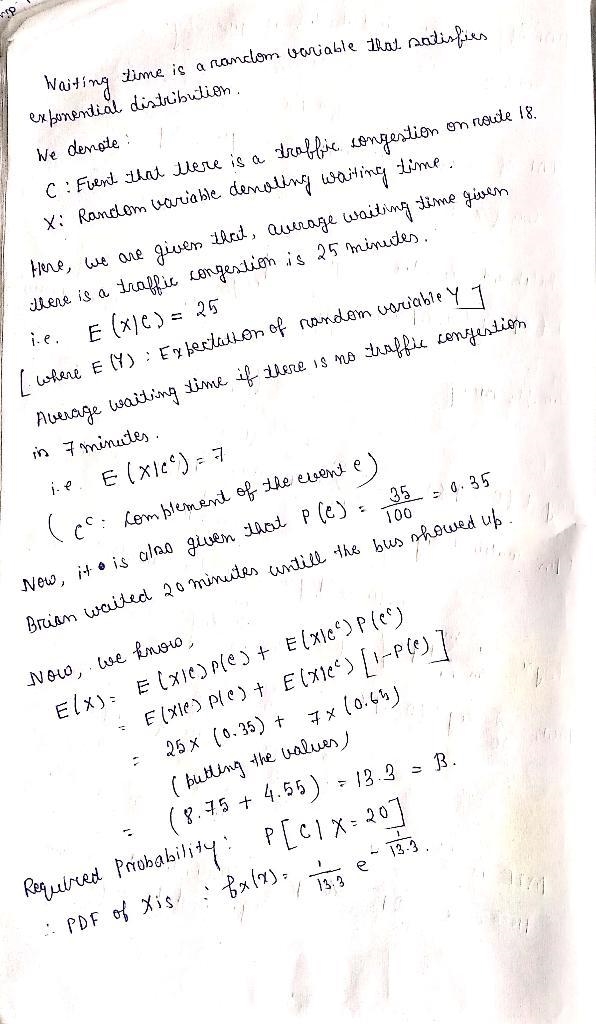 Waiting time is a random variable that satisfies
exponential distribution.
We denote:
C : Event that there is a traffic congestion on route 18.
X: Random variable denoting waiting time.
Here, we are given that, average waiting time given
there is a traffic congestion is 25 minutes.
i.e. E(X|C) = 25
[where E(Y) : Expectation of random variable Y]
Average waiting time if there is no traffic congestion
is 7 minutes.
i.e. E(X|Cᶜ) = 7
(Cᶜ: Complement of the event C)
Now, it is also given that P(C) = 35/100 = 0.35
Brian waited 20 minutes untill the bus showed up.
Now, we know,
E(X) = E(X|C)P(C) + E(X|Cᶜ)P(Cᶜ)
= E(X|C)P(C) + E(X|Cᶜ)[1-P(C)]
= 25 x (0.35) + 7 x (0.65)
(putting the values)
= (8.75 + 4.55) = 13.3 = B.
Required Probability: P[C|X=20]
∴ PDF of X is : fx(x) = 1/13.3 e^(-1/13.3).